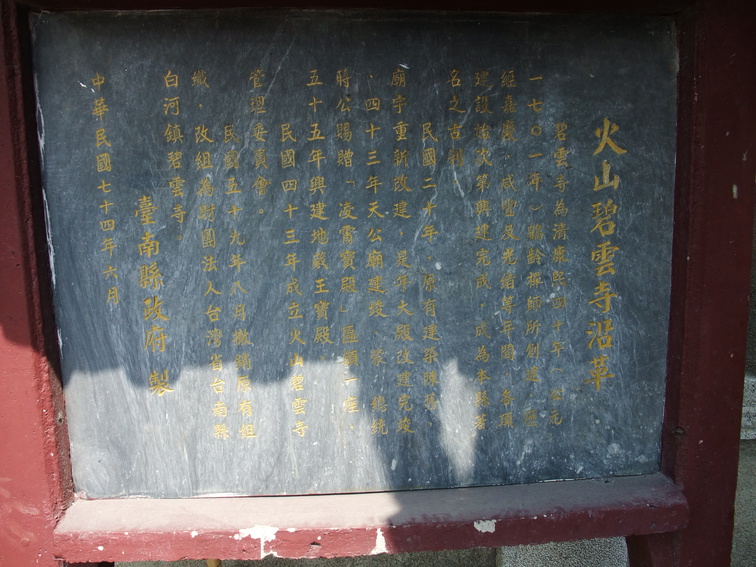 火山碧雲寺沿革
碧雲寺為清康熙四十年(公元
一七〇一年)鶴齡禪師所創建,歷
經嘉慶,咸豐及光緒等年間,各項
建設漸次第興建完成,成為本縣著
名之古剎
民國二十年,原有建築陳舊,
廟宇重新改建,是年大殿改建完竣
,四十三年天公廟建竣,蒙 總統
蔣公賜贈「凌霄寶殿」匾額一座,
五十五年興建地藏王寶殿
民國四十三年成立火山碧雲寺
管理委員會。
民國五十九年八月撤銷原有組
織,改組為財團法人台灣省台南縣
白河鎮碧雲寺。
臺南縣政府 製
中華民國七十四年六月